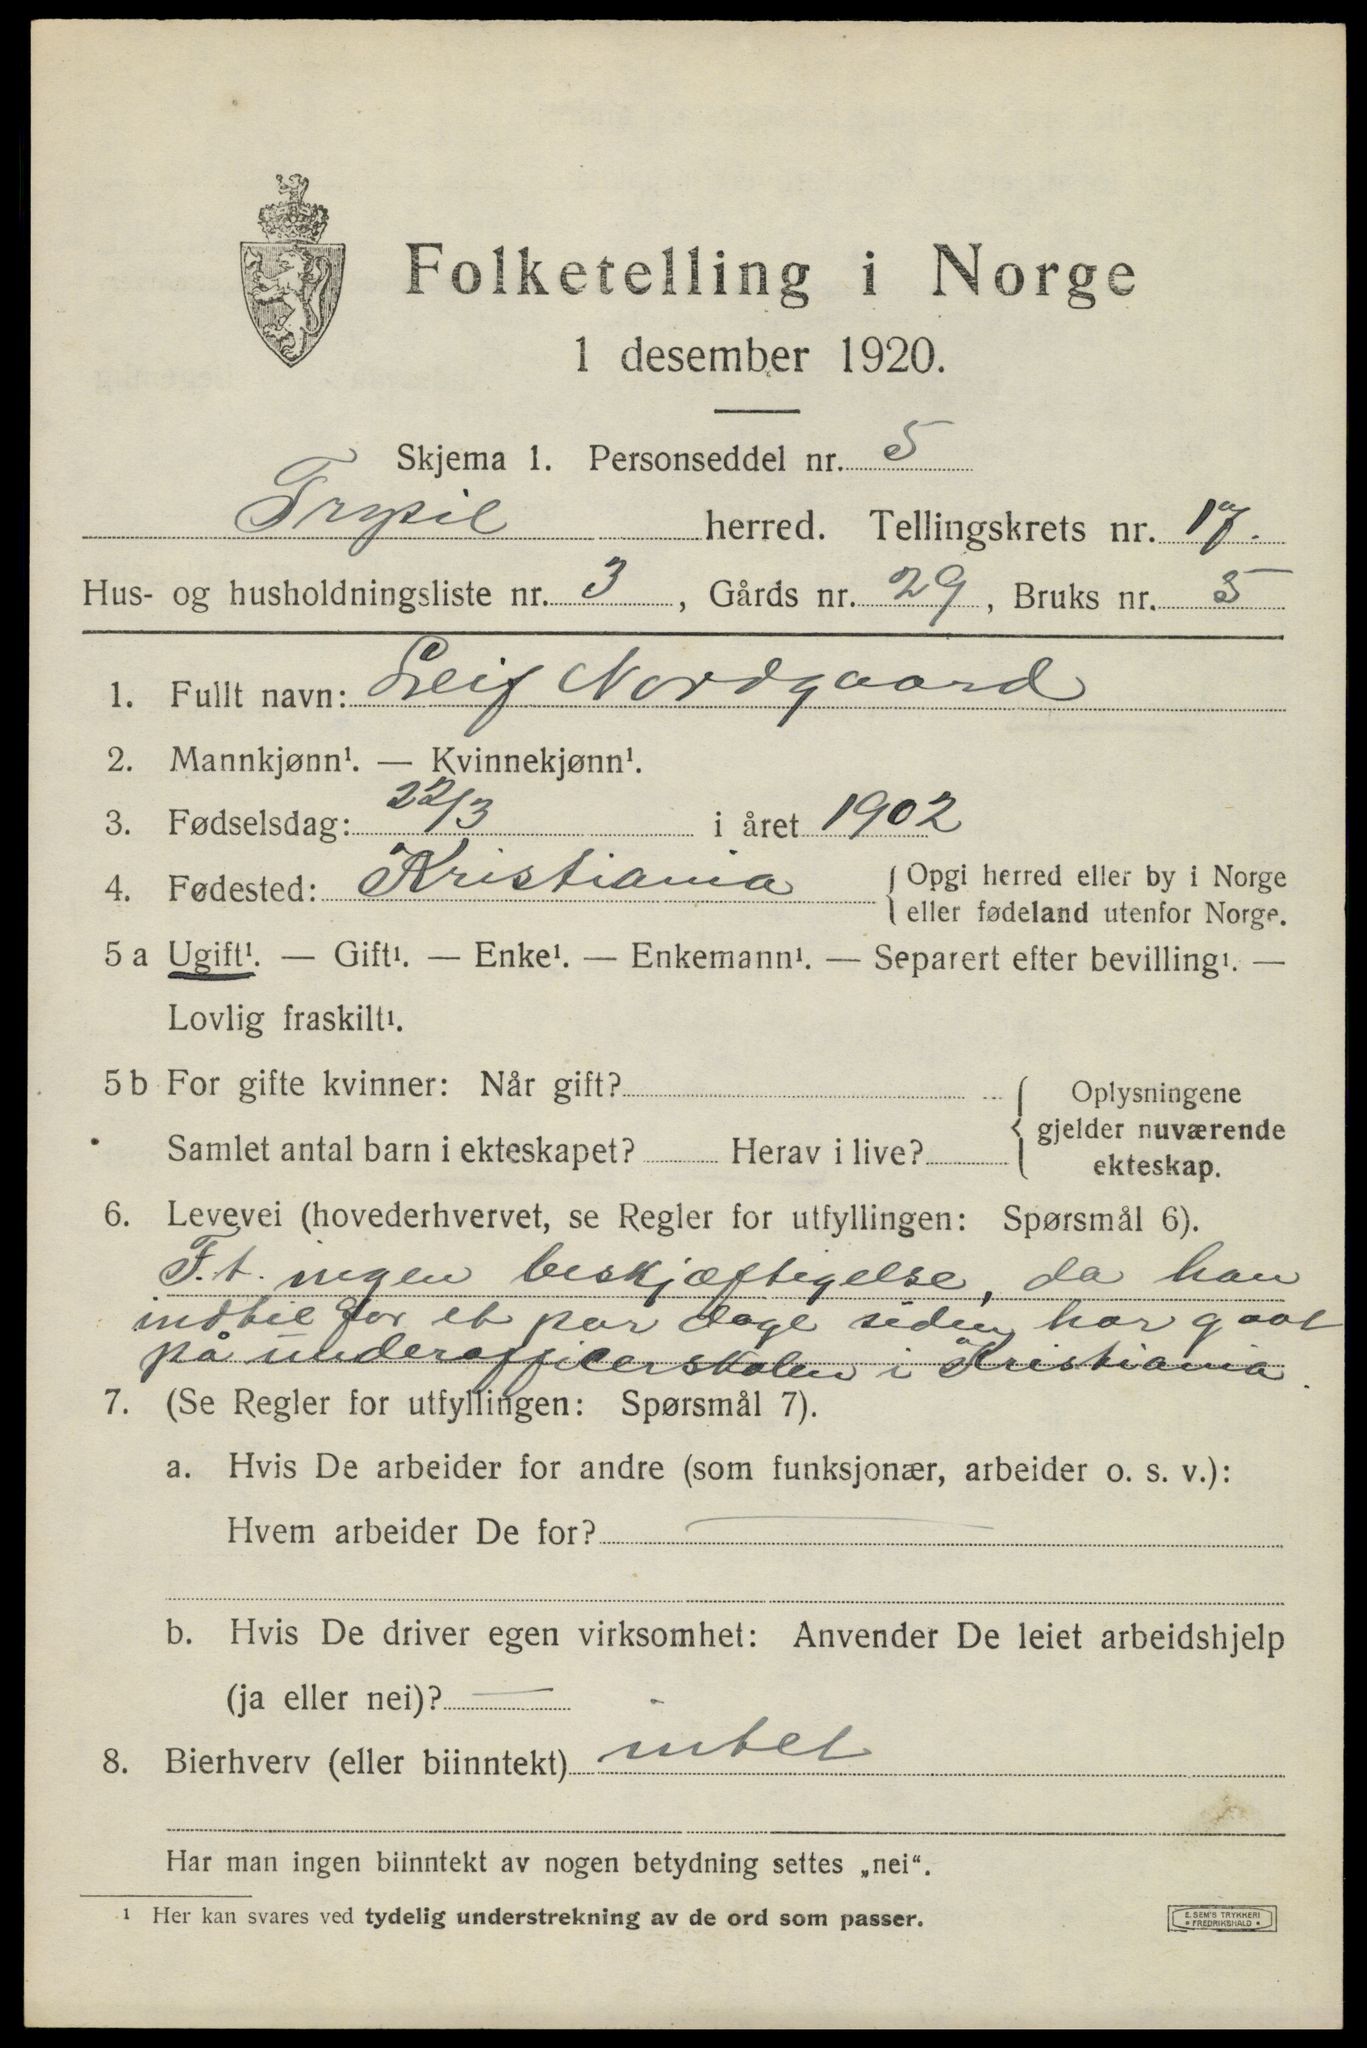 Folketelling i Norge
1 desember 1920.
Skjema 1. Personseddel nr. 5
Trysil herred. Tellingskrets nr. 17.
Hus- og husholdningsliste nr. 3, Gårds nr. 29, Bruks nr. 5
1. Fullt navn: Leif Nordgaard
2. Mannkjønn¹. — Kvinnekjønn¹.
3. Fødselsdag: 22/3 i året 1902
4. Fødested: Kristiania { Opgi herred eller by i Norge
eller fødeland utenfor Norge.
5 a Ugift¹. — Gift¹. — Enke¹. — Enkemann¹. — Separert efter bevilling¹. —
Lovlig fraskilt¹.
5 b For gifte kvinner: Når gift? { Oplysningene
gjelder nuværende
Samlet antal barn i ekteskapet? Herav i live?
ekteskap.
6. Levevei (hovederhvervet, se Regler for utfyllingen: Spørsmål 6).
F.t. ingen beskjæftigelse, da han
indtil for et par dage siden har gaat
på underofficerskolen i Kristiania.
7. (Se Regler for utfyllingen: Spørsmål 7).
a. Hvis De arbeider for andre (som funksjonær, arbeider o. s. v.):
Hvem arbeider De for? —
b. Hvis De driver egen virksomhet: Anvender De leiet arbeidshjelp
(ja eller nei)? —
8. Bierhverv (eller biinntekt) intet
Har man ingen biinntekt av nogen betydning settes „nei“.
¹ Her kan svares ved tydelig understrekning av de ord som passer.
E. SEM'S TRYKKERI
• FREDRIKSHALD •